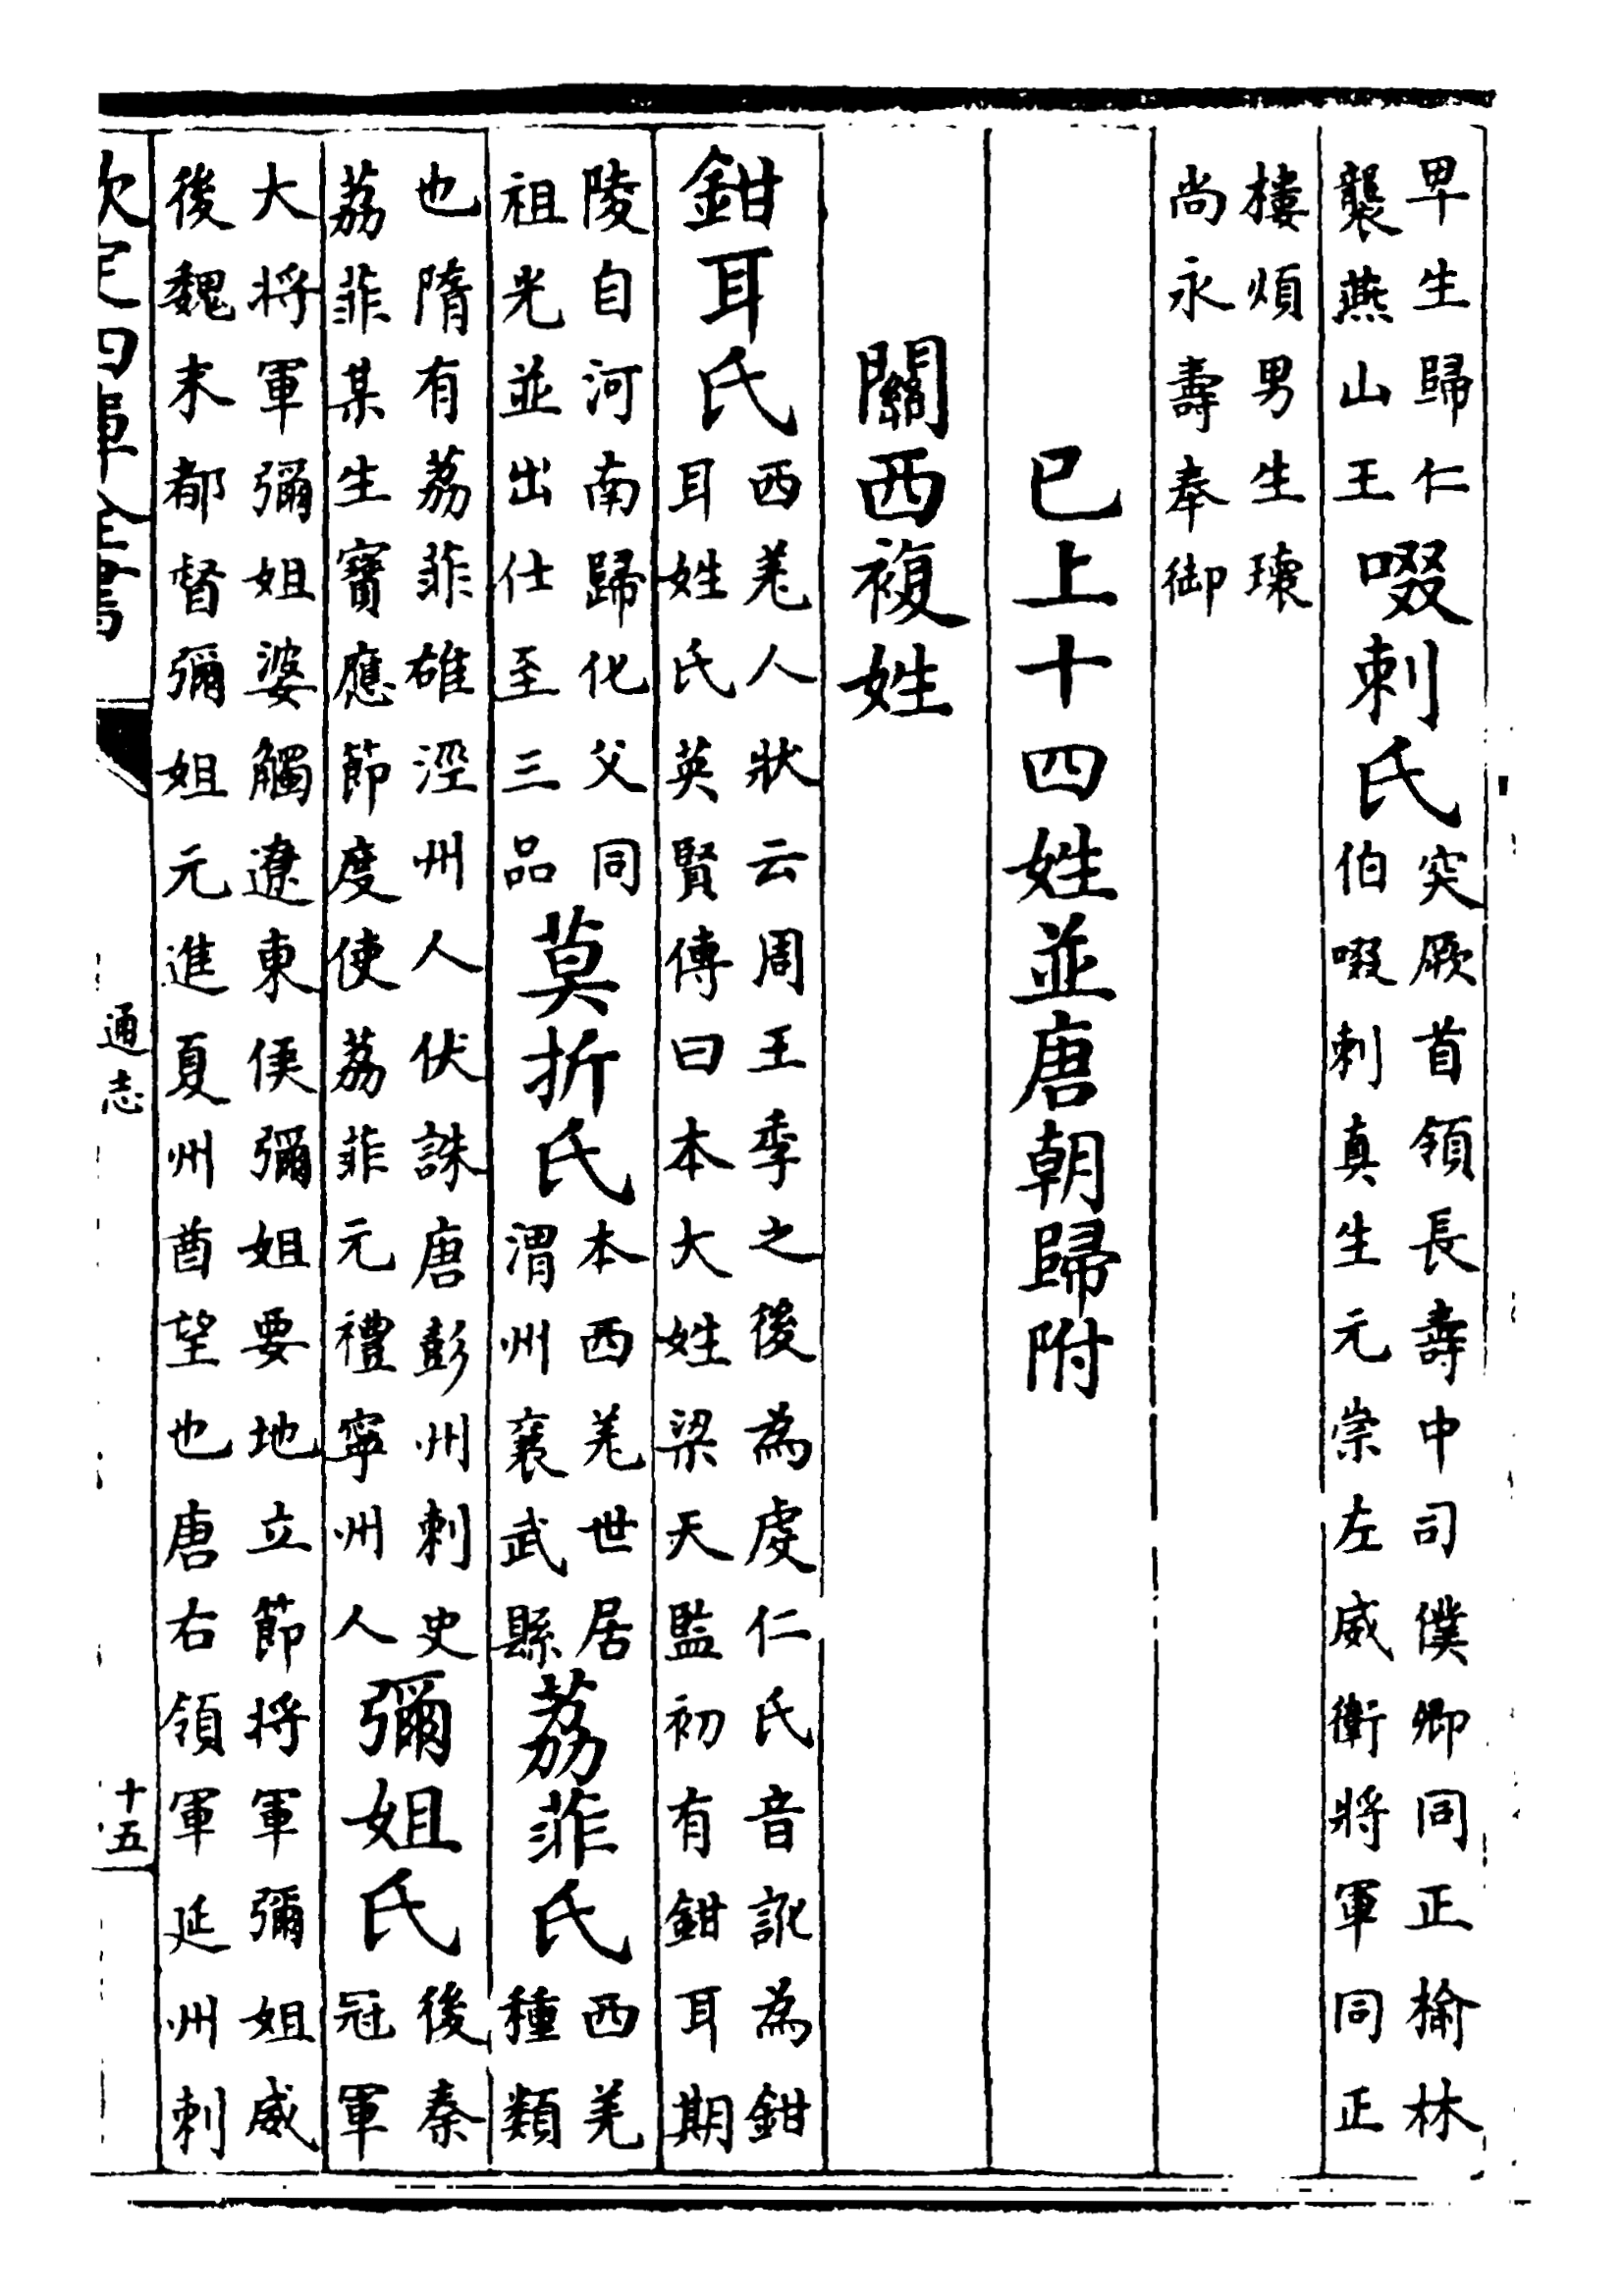 卑生歸仁
襲燕山王
啜刺氏
突厥首領長壽中司僕卿同正榆林
伯啜刺真生元崇左威衛將軍同正
樓煩男生瓌
尚永壽奉御
已上十四姓並唐朝歸附
關西複姓
鉗耳氏
西羌人狀云周王季之後為虔仁氏音訛為鉗
耳姓氏英賢傳曰本大姓梁天監初有鉗耳期
陵自河南歸化父同
祖光並出仕至三品
莫折氏
本西羌世居
渭州襄武縣
荔菲氏
西羌
種類
也隋有荔菲雄涇州人伏誅唐彭州刺史
荔菲某生寶應節度使荔菲元禮寧州人
彌姐氏
後秦
冠軍
大将軍彌姐婆觸遼東侯彌姐要地立節将軍彌姐威
後魏末都督彌姐元進夏州酋望也唐右領軍延州刺
欽定四庫全書
通志
十五